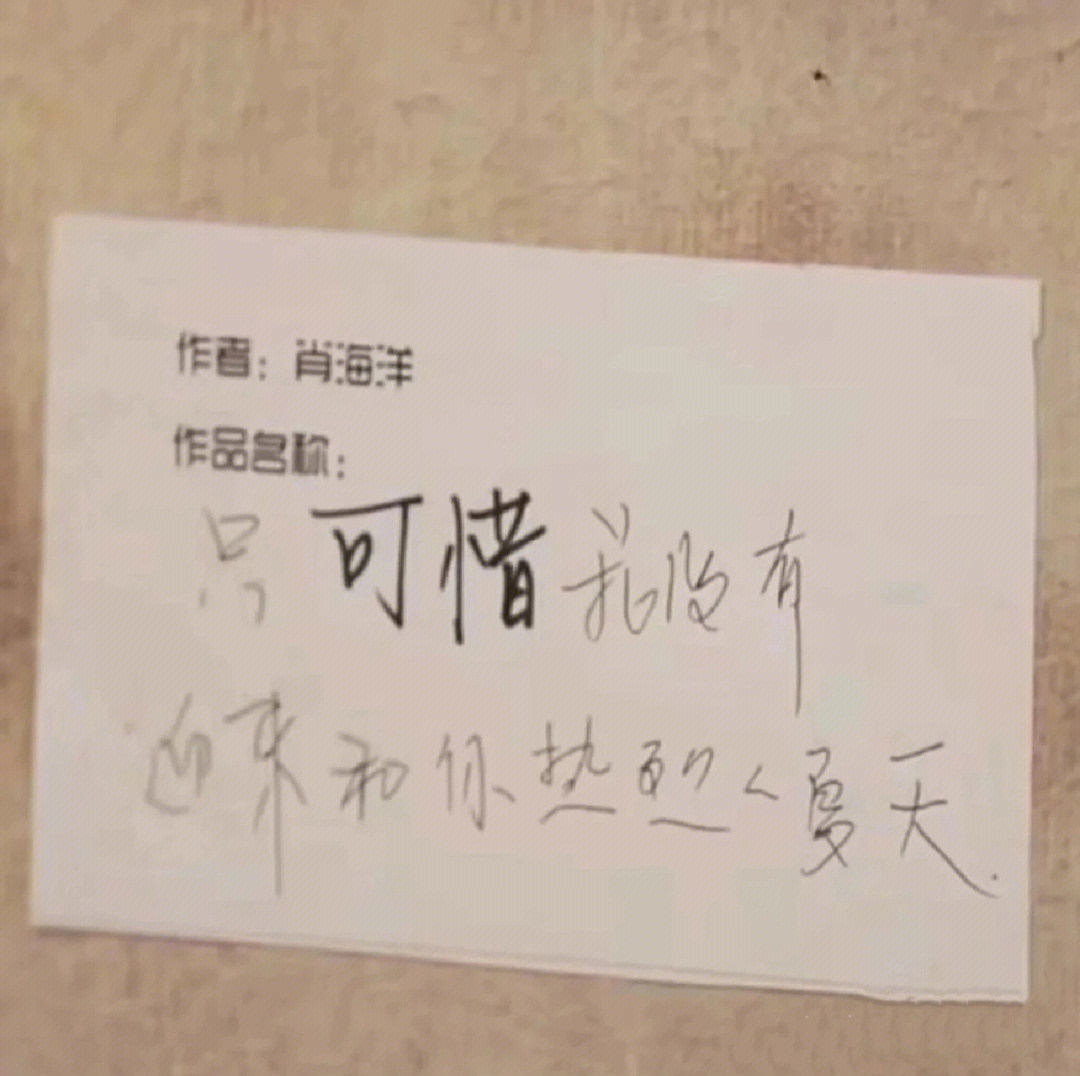 作者：肖海洋
作品名称：
只可惜我没有
迎来和你热烈的夏天.